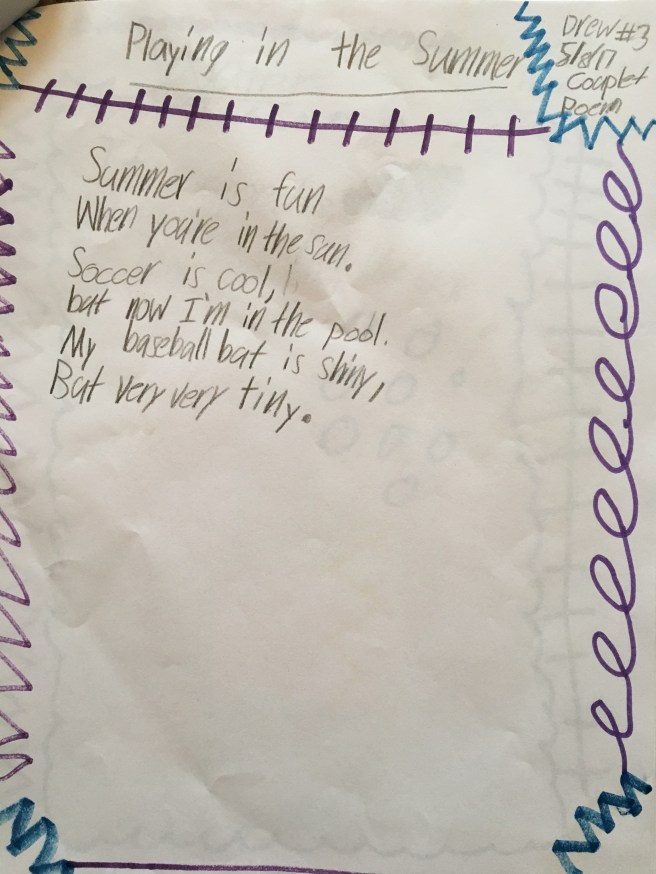 Playing in the Summer
Drew #3
5/8/17
Couplet
Poem
Summer is fun
When you're in the sun.
Soccer is cool,
but now I'm in the pool.
My baseball bat is shiny,
But very very tiny.